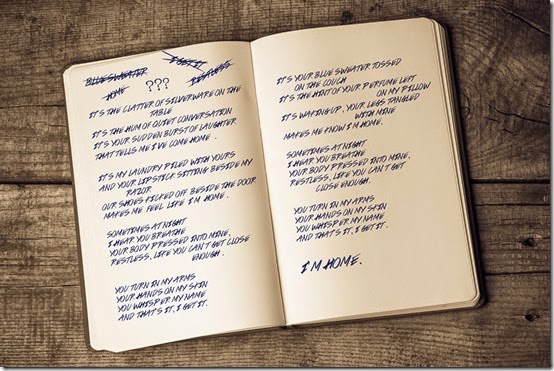 BLUE SWEATER
I GET IT
HOME
???
RESTLESS
IT'S THE CLATTER OF SILVERWARE ON THE
TABLE
IT'S THE HUM OF QUIET CONVERSATION
IT'S YOUR SUDDEN BURST OF LAUGHTER
THAT TELLS ME I'VE COME HOME.
IT'S MY LAUNDRY PILED WITH YOURS
AND YOUR LIPSTICK SITTING BESIDE MY
RAZOR
OUR SHOES KICKED OFF BESIDE THE DOOR
MAKES ME FEEL LIKE I'M HOME.
SOMETIMES AT NIGHT
I HEAR YOU BREATHE
YOUR BODY PRESSED INTO MINE,
RESTLESS, LIKE YOU CAN'T GET CLOSE
ENOUGH.
YOU TURN IN MY ARMS
YOUR HANDS ON MY SKIN
YOU WHISPER MY NAME
AND THAT'S IT, I GET IT.
IT'S YOUR BLUE SWEATER TOSSED
ON THE COUCH
IT'S THE HINT OF YOUR PERFUME LEFT
ON MY PILLOW
IT'S WAKING UP, YOUR LEGS TANGLED
WITH MINE
MAKES ME KNOW I'M HOME.
SOMETIMES AT NIGHT
I HEAR YOU BREATHE
YOUR BODY PRESSED INTO MINE,
RESTLESS, LIKE YOU CAN'T GET
CLOSE ENOUGH.
YOU TURN IN MY ARMS
YOUR HANDS ON MY SKIN
YOU WHISPER MY NAME
AND THAT'S IT, I GET IT.
I'M HOME.